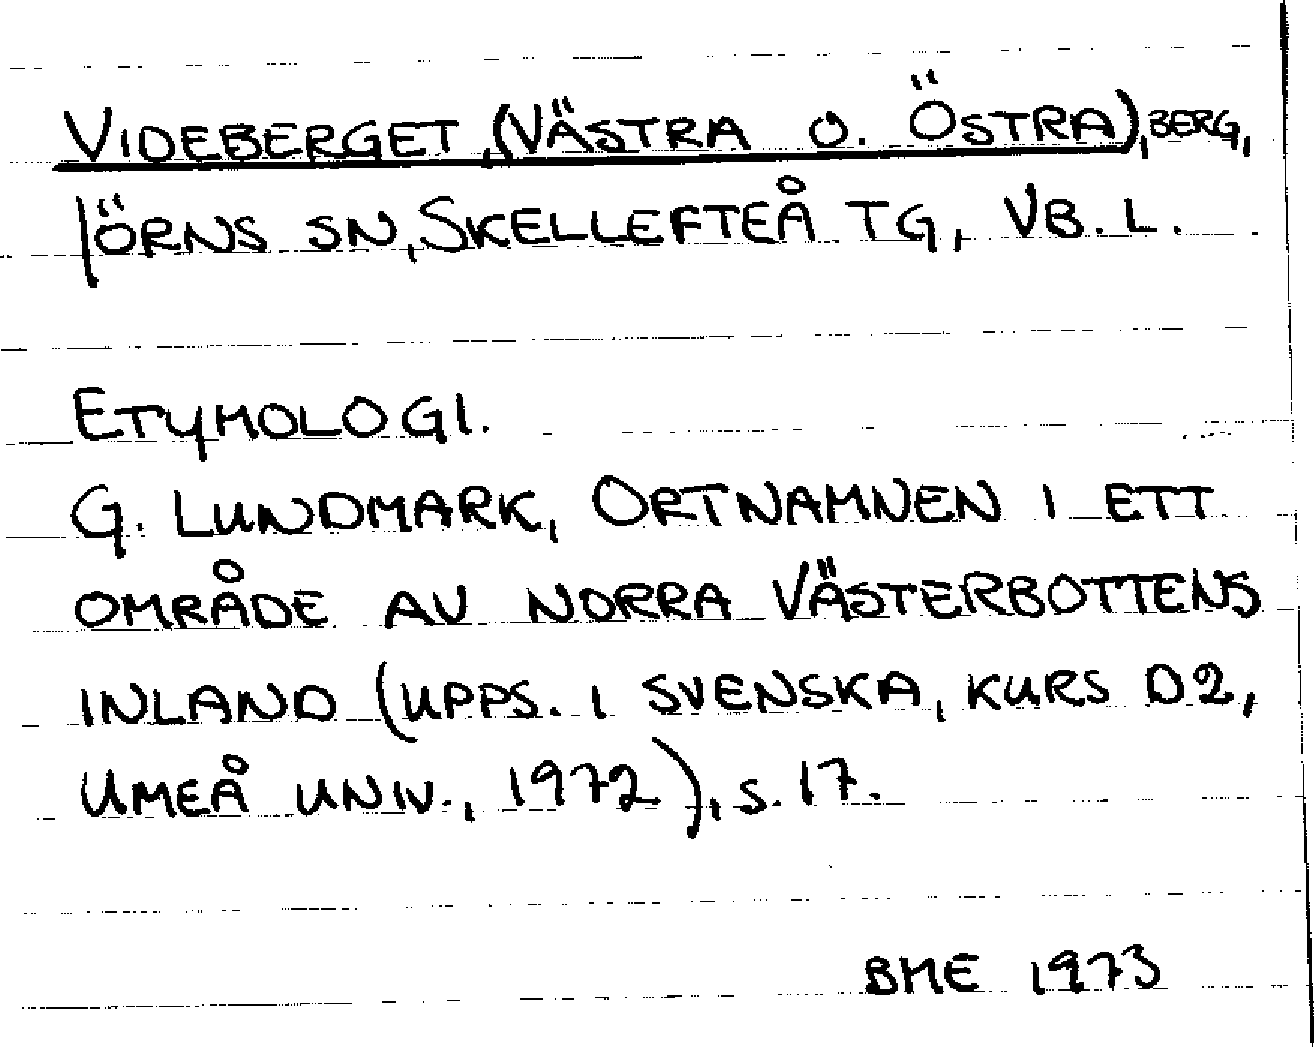 VIDEBERGET, (VÄSTRA O. ÖSTRA), BERG,
JÖRNS SN, SKELLEFTEÅ TG, VB. L.
ETYMOLOGI.
G. LUNDMARK, ORTNAMNEN I ETT
OMRÅDE AV NORRA VÄSTERBOTTENS
INLAND (UPPS. I SVENSKA, KURS D2,
UMEÅ UNIV., 1972), S. 17.
BME 1973